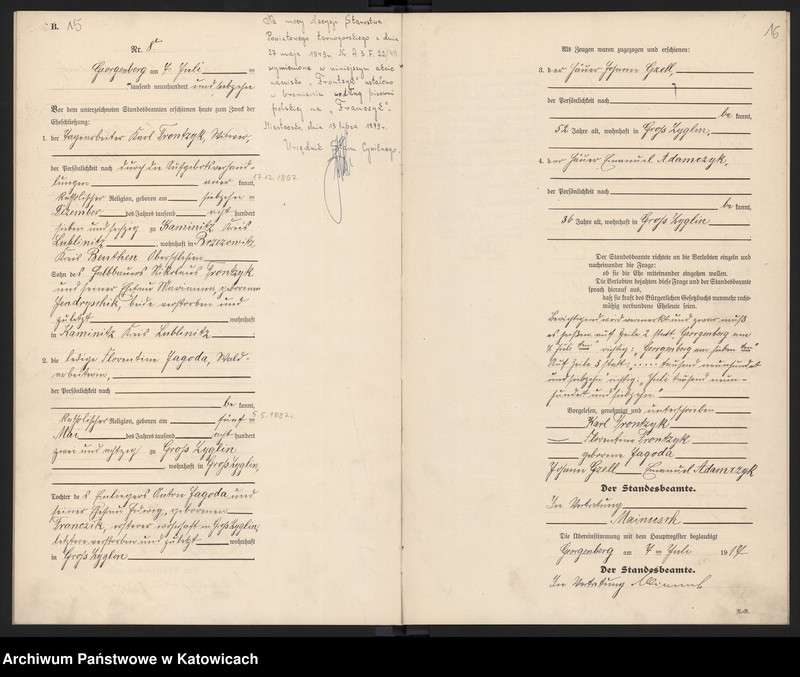 B. 15
Nr. 8
Georgenberg am 7. Juli
tausend neunhundert und siebzehn
Vor dem unterzeichneten Standesbeamten erschienen heute zum Zweck der
Eheschließung:
1. der Tagearbeiter Karl Frontzyk, Witwer,
der Persönlichkeit nach durch die Aufgebotsverhand-
lungen anerkannt,
katholischer Religion, geboren am siebzehn
17.12.1867
Dezember des Jahres tausend acht hundert
sieben und sechzig zu Kaminitz Kreis
Lublinitz, wohnhaft in Brzezowitz
Kreis Beuthen Oberschlesien
Sohn des Halbbauers Nikolaus Frontzyk
und seiner Ehefrau Marianna, geborenen
Jendryschik, beide verstorben und
zuletzt wohnhaft
in Kaminitz Kreis Lublinitz.
2. die ledige Florentine Jagoda, Wald-
arbeiterin,
der Persönlichkeit nach
bekannt,
katholischer Religion, geboren am fünf
5.5.1882.
Mai des Jahres tausend acht hundert
zwei und achtzig zu Groß Zyglin
, wohnhaft in Groß Zyglin,
Tochter des Einliegers Anton Jagoda und
seiner Ehefrau Hedwig, geborenen
Franczik, ersterer wohnhaft in Groß Zyglin,
letztere verstorben und zuletzt wohnhaft
in Groß Zyglin
Na mocy decyzji Starostwa
Powiatowego tarnogórskiego z dnia
27 maja 1949r.
wymienione w niniejszym akcie
nazwisko "Frontzyk" ustalono
w brzmieniu według pisowni
polskiej na "Frączyk".
Miasteczko, dnia 13 lipca 1949r.
Urzędnik Stanu Cywilnego.
16
Als Zeugen waren zugezogen und erschienen:
3. der Häuer Johann Gzell,
der Persönlichkeit nach
bekannt,
52 Jahre alt, wohnhaft in Groß Zyglin,
4. der Häuer Emanuel Adamczyk,
der Persönlichkeit nach
bekannt,
36 Jahre alt, wohnhaft in Groß Zyglin
Der Standesbeamte richtete an die Verlobten einzeln und
nacheinander die Frage:
ob sie die Ehe miteinander eingehen wollen.
Die Verlobten bejahten diese Frage und der Standesbeamte
sprach hierauf aus,
daß sie kraft des Bürgerlichen Gesetzbuchs nunmehr recht-
mäßig verbundene Eheleute seien.
Berichtigend wird vermerkt und zwar muß
es heißen auf Zeile 2 statt "Georgenberg am
7 Juli" richtig: "Georgenberg am sieben ten"
Auf Zeile 3 statt: "..... tausend neunhundert
und siebzehn" richtig: "Juli tausend neun-
hundert und siebzehn."
Vorgelesen, genehmigt und unterschrieben
Karl Frontzyk
Florentine Frontzyk
geborene Jagoda
Johann Gzell Emanuel Adamczyk
Der Standesbeamte.
In Vertretung
Die Übereinstimmung mit dem Hauptregister beglaubigt
Georgenberg am 7 ten Juli 1917
Der Standesbeamte.
In Vertretung
Archiwum Państwowe w Katowicach